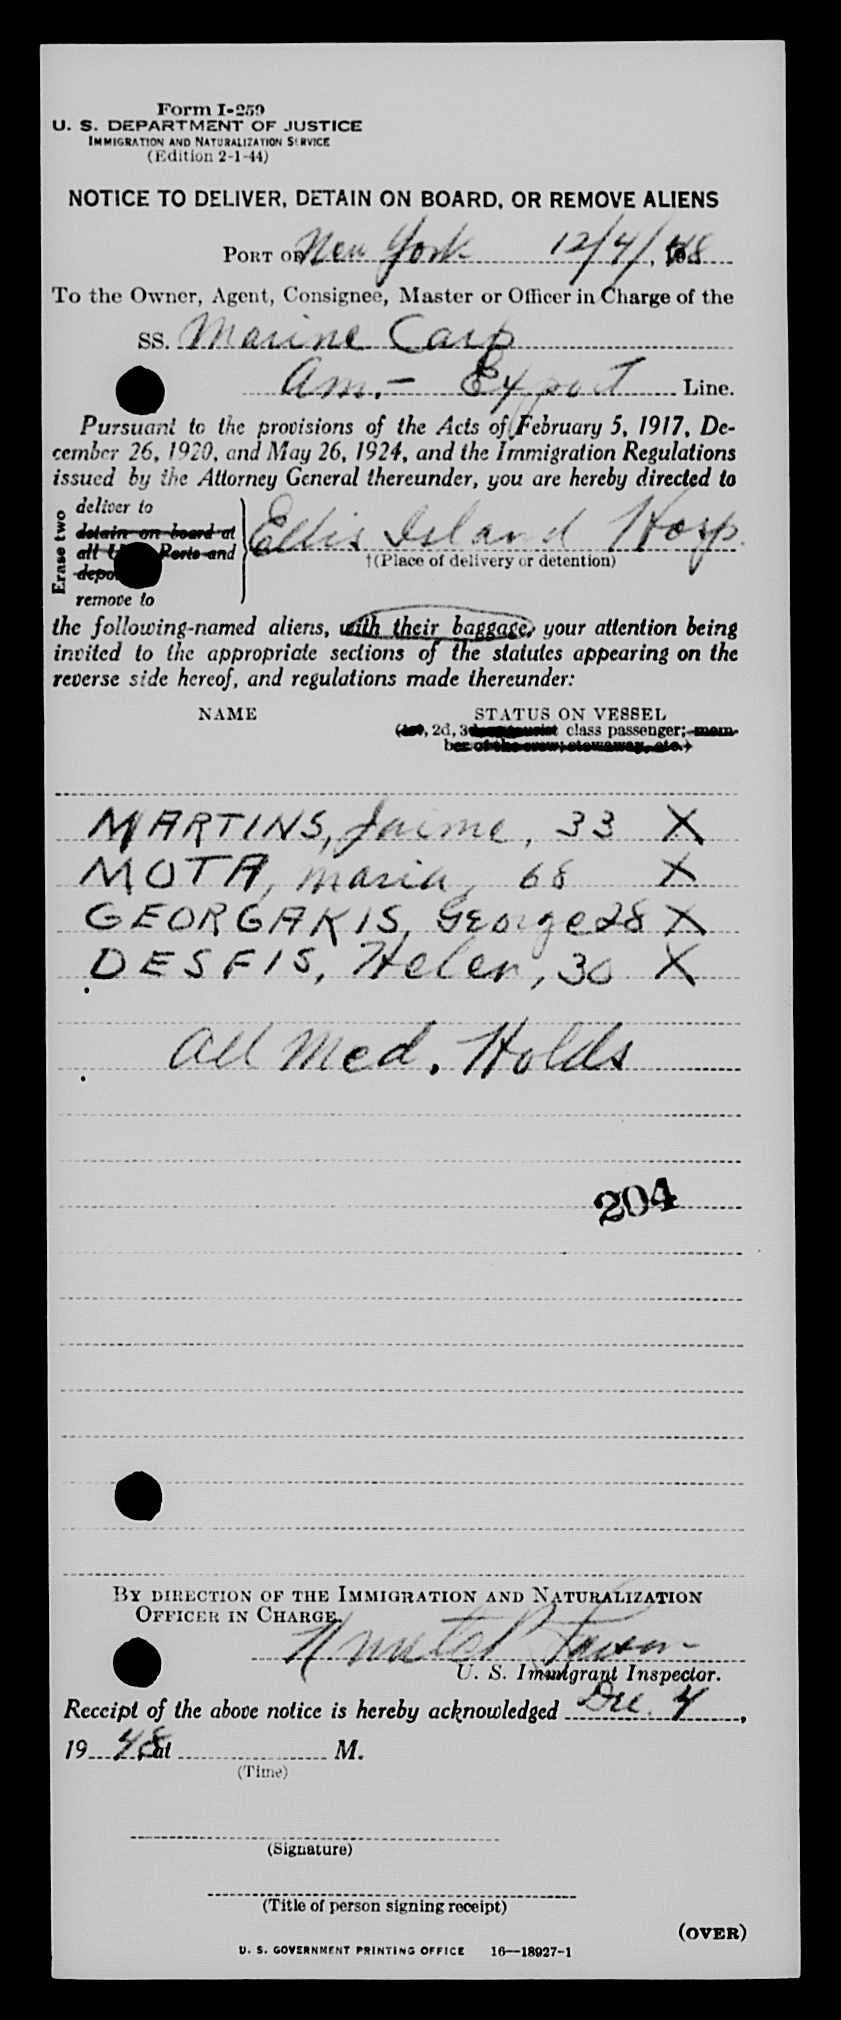 Form I-259
U. S. DEPARTMENT OF JUSTICE
IMMIGRATION AND NATURALIZATION SERVICE
(Edition 2-1-44)
NOTICE TO DELIVER, DETAIN ON BOARD, OR REMOVE ALIENS
PORT OF New York 12/4/, 48
To the Owner, Agent, Consignee, Master or Officer in Charge of the
SS. Marine Carp
Am.- Export Line.
Pursuant to the provisions of the Acts of February 5, 1917, De-
cember 26, 1920, and May 26, 1924, and the Immigration Regulations
issued by the Attorney General thereunder, you are hereby directed to
Erase two
deliver to
detain on board at
all U Ports and
depo
remove to
Ellis Island Hosp.
†(Place of delivery or detention)
the following-named aliens, with their baggage, your attention being
invited to the appropriate sections of the statutes appearing on the
reverse side hereof, and regulations made thereunder:
NAME STATUS ON VESSEL
(1st, 2d, 3d class passenger; mem-
ber of the crew; stowaway, etc.)
MARTINS, Jaime, 33 X
MOTA, Maria, 68 X
GEORGAKIS, George 28 X
DESFIS, Helen, 30 X
All Med. Holds
204
BY DIRECTION OF THE IMMIGRATION AND NATURALIZATION
OFFICER IN CHARGE.
U. S. Immigrant Inspector.
Receipt of the above notice is hereby acknowledged Dec. 4,
19 48, at M.
(Time)
(Signature)
(Title of person signing receipt)
(OVER)
U. S. GOVERNMENT PRINTING OFFICE 16—18927-1